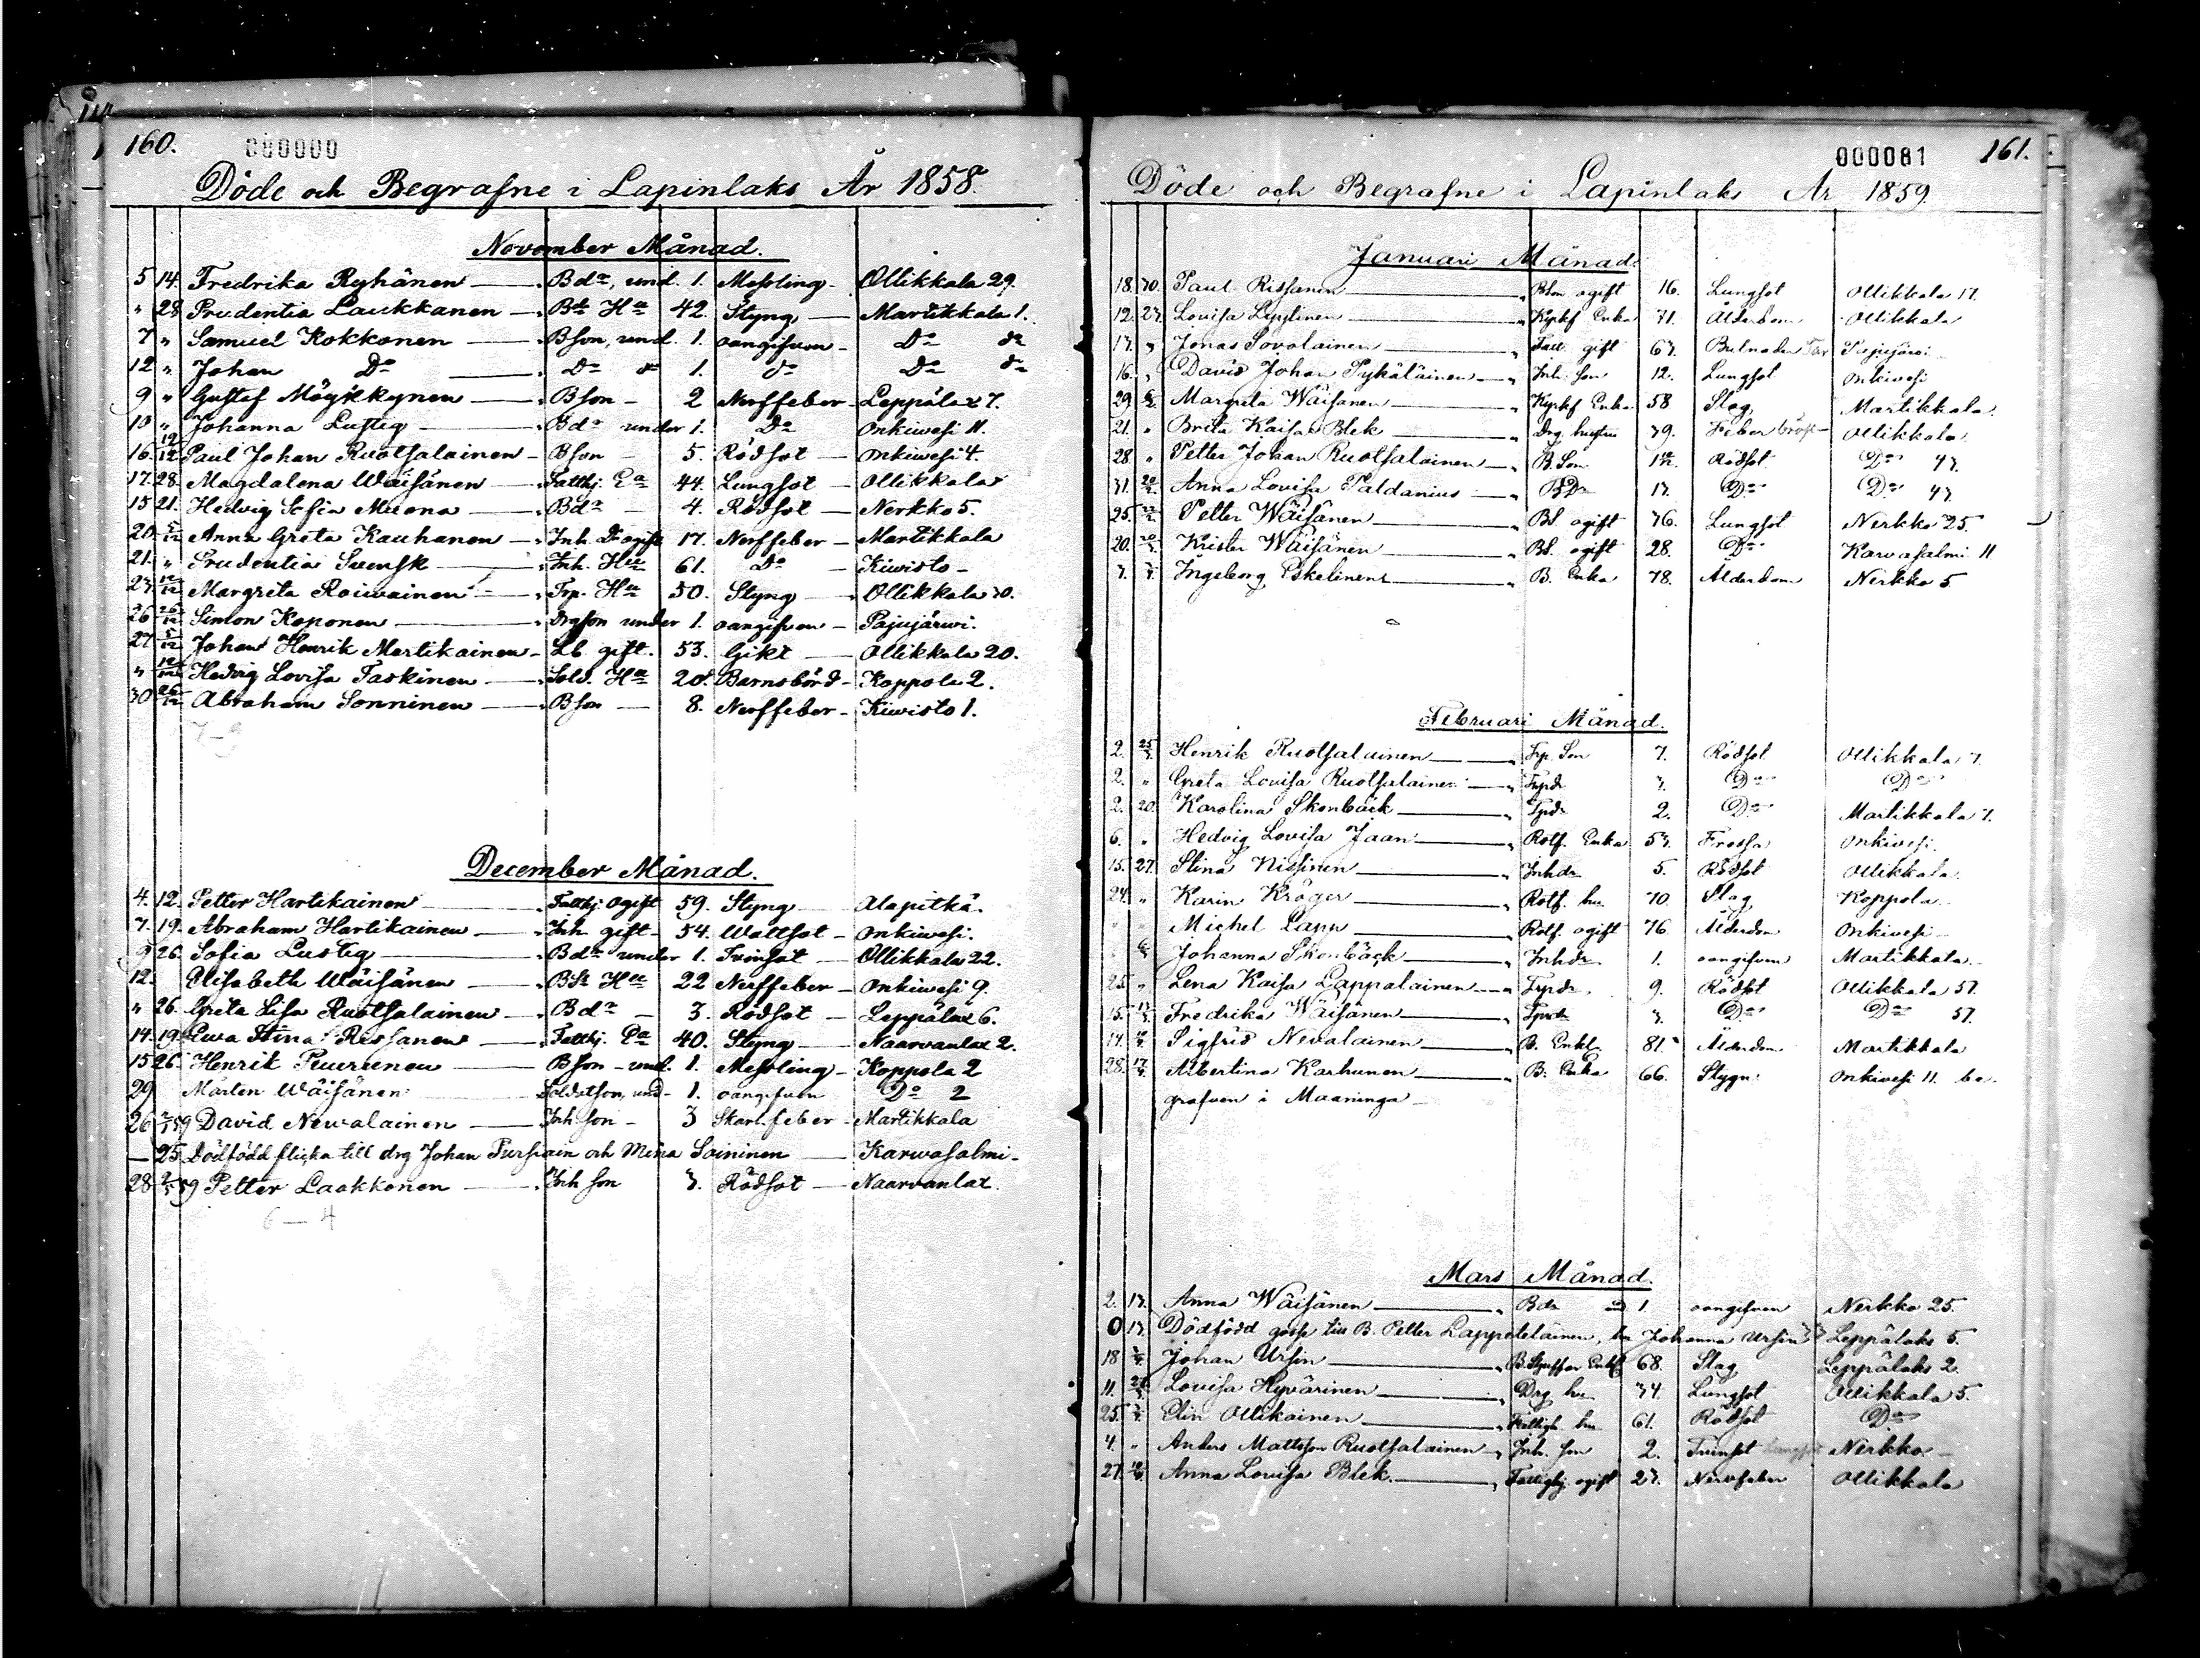 160. 080000
Döde och Begrafne i Lapinlaks År 1858.
November Månad.
5 14. Fredrika Ryhänen — Bdr, und. 1. Messling — Ollikkala 29.
" 28 Prudentia Laukkanen — Hu 42. Styng — Martikkala 1.
7 " Samuel Kokkonen — Bson, und. 1. oangifven — Do do
12 " Johan Do — Do do 1. do Do do
9 " Gustaf Möykkynen — Bson — 2 Nerffeber — Leppälax 7.
10 " Johanna Lustig — Bdr under 1. Do Onkiwesi 11.
16. 12/12 Paul Johan Ruotsalainen — Bson — 5. Rödsot — Onkiwesi 4.
17. 28. Magdalena Wäisänen — Fatthj. Ea 44. Lungsot — Ollikkala
15 21. Hedvig Sofia Muona — Bdr — 4. Rödsot — Nerkko 5.
20. 5/12 Anna Greta Kauhanen — Inh. Dr ogift 17. Nerffeber — Martikkala
21. " Prudentia Svensk — Inh. Hu 61. Do — Kiwisto —
27 12/12 Margreta Roivainen — Trp. Hu 50. Styng — Ollikkala 70.
26 26/12 Simon Koponen — Drgson under 1. oangifven — Pajujärwi.
27 5/12 Johan Henrik Martikainen — Lb gift. 53. Gikt — Ollikkala 20.
" 12/12 Hedvig Lovisa Taskinen — Sold. Hu 28. Barnsbörd — Koppola 2.
30 26/12 Abraham Sonninen — Bson — 8. Nerffeber — Kiwisto 1.
7—9
December Månad.
4. 12. Petter Hartikainen — Fatthj ogift 59. Styng — Alapitkä.
7. 19. Abraham Hartikainen — Inh gift — 54. Wattsot — Onkiwesi.
9 26. Sofia Lustig — Bdr under 1. Tvinsot — Ollikkala 22.
12. Elisabeth Wäisänen — Hu 22 Nerffeber — Onkiwesi 9.
" 26. Greta Lisa Ruotsalainen — Bdr — 3. Rödsot — Leppälax 6.
14. 19. Ewa Stina Rissanen — Fatthj. Ea 40. Styng — Naarvanlax 2.
15 26. Henrik Puurunen — Bson — und. 1. Messling — Koppola 2
29 Mårten Wäisänen — Soldatson, und — 1. oangifven Do 2
26 2/1 59 David Newalainen — Inh son — 3 Skarl. feber — Martikkala
— 25. Dödfödd flicka till drg Johan Pursiain och Mina Soininen — Karwasalmi —
28 59 Petter Laakkonen — Inh son 3. Rödsot — Naarvanlax.
6—4
000081 161.
Döde och Begrafne i Lapinlaks År 1859.
Januari Månad.
18. 30. Paul Rissanen — Bson ogift 16. Lungsot Ollikkala 17.
12. 23. Lovisa Leppänen — Enka 71. Ålderdom Ollikkala
13. " Jonas Sovolainen — gift 63. Pajujärwi
16. " David Johan Pykäläinen — Inh. son 12. Lungsot Onkiwesi
29. Margreta Wäisänen — Enka 58 Slag Martikkala
21. " Brita Kaisa Blek — Drg. hustru 39. Feber Ollikkala
28. " Petter Johan Ruotsalainen — B. Son Rödsot Do 47.
31. Anna Lovisa Paldanius — BDr 13. Do Do 47
25. Petter Wäisänen — ogift 76. Lungsot Nerkko 25.
20. Krister Wäisänen — ogift 28. Do Karvasalmi 11
7. Ingeborg Eskelinen — B. Enka 78. Ålderdom Nerkko 5
Februari Månad.
2. Henrik Ruotsalainen — Trp. Son 7. Rödsot Ollikkala 7.
2. " Greta Lovisa Ruotsalainen — Trpdr 3. Do Do
2. 20. Karolina Skonbäck — Trpdr 2. Do Martikkala 7.
6. " Hedvig Lovisa Jaan — Rotf. Enka 53. Frossa Onkivesi.
15. 27. Stina Nissinen — Inhdr 5. Rödsot Ollikkala.
24. " Karin Kröger — Rotf. hu. 70. Slag Koppola.
" " Michel Lapp — Rotf. ogift 76 Ålderdom Onkivesi
Johanna Skonbäck — Inhdr 1. oangifven Martikkala.
25. " Lena Kaisa Lappalainen — Trpdr. 9. Rödsot Ollikkala 57.
15. Fredrika Wäisänen — Trpdr 3. Do Do 57.
17. Sigfrid Nevalainen — B. Enkl. 81. Ålderdom Martikkala
28. Albertina Karhunen — B. Enka 66. Stygn. Onkivesi 11. be-
grafven i Maaninga
Mars Månad.
2. 13. Anna Wäisänen — Bdr 1. oangifven Nerkko 25.
0 13. Dödfödd gosse till B. Petter Lappeteläinen, hu Johanna Ursin Leppälaks 5.
18 Johan Ursin — 68. Slag Leppälaks 2.
11. Lovisa Hyvärinen — Drg hu 34. Lungsot Ollikkala 5.
25. Elin Ollikainen — hu 61. Rödsot Do
4. " Anders Mattsson Ruotsalainen — Inh. son 2. Tvinsot Nerkko —
27. Anna Lovisa Blek — Fattighj ogift 23. Nervfeber Ollikkala